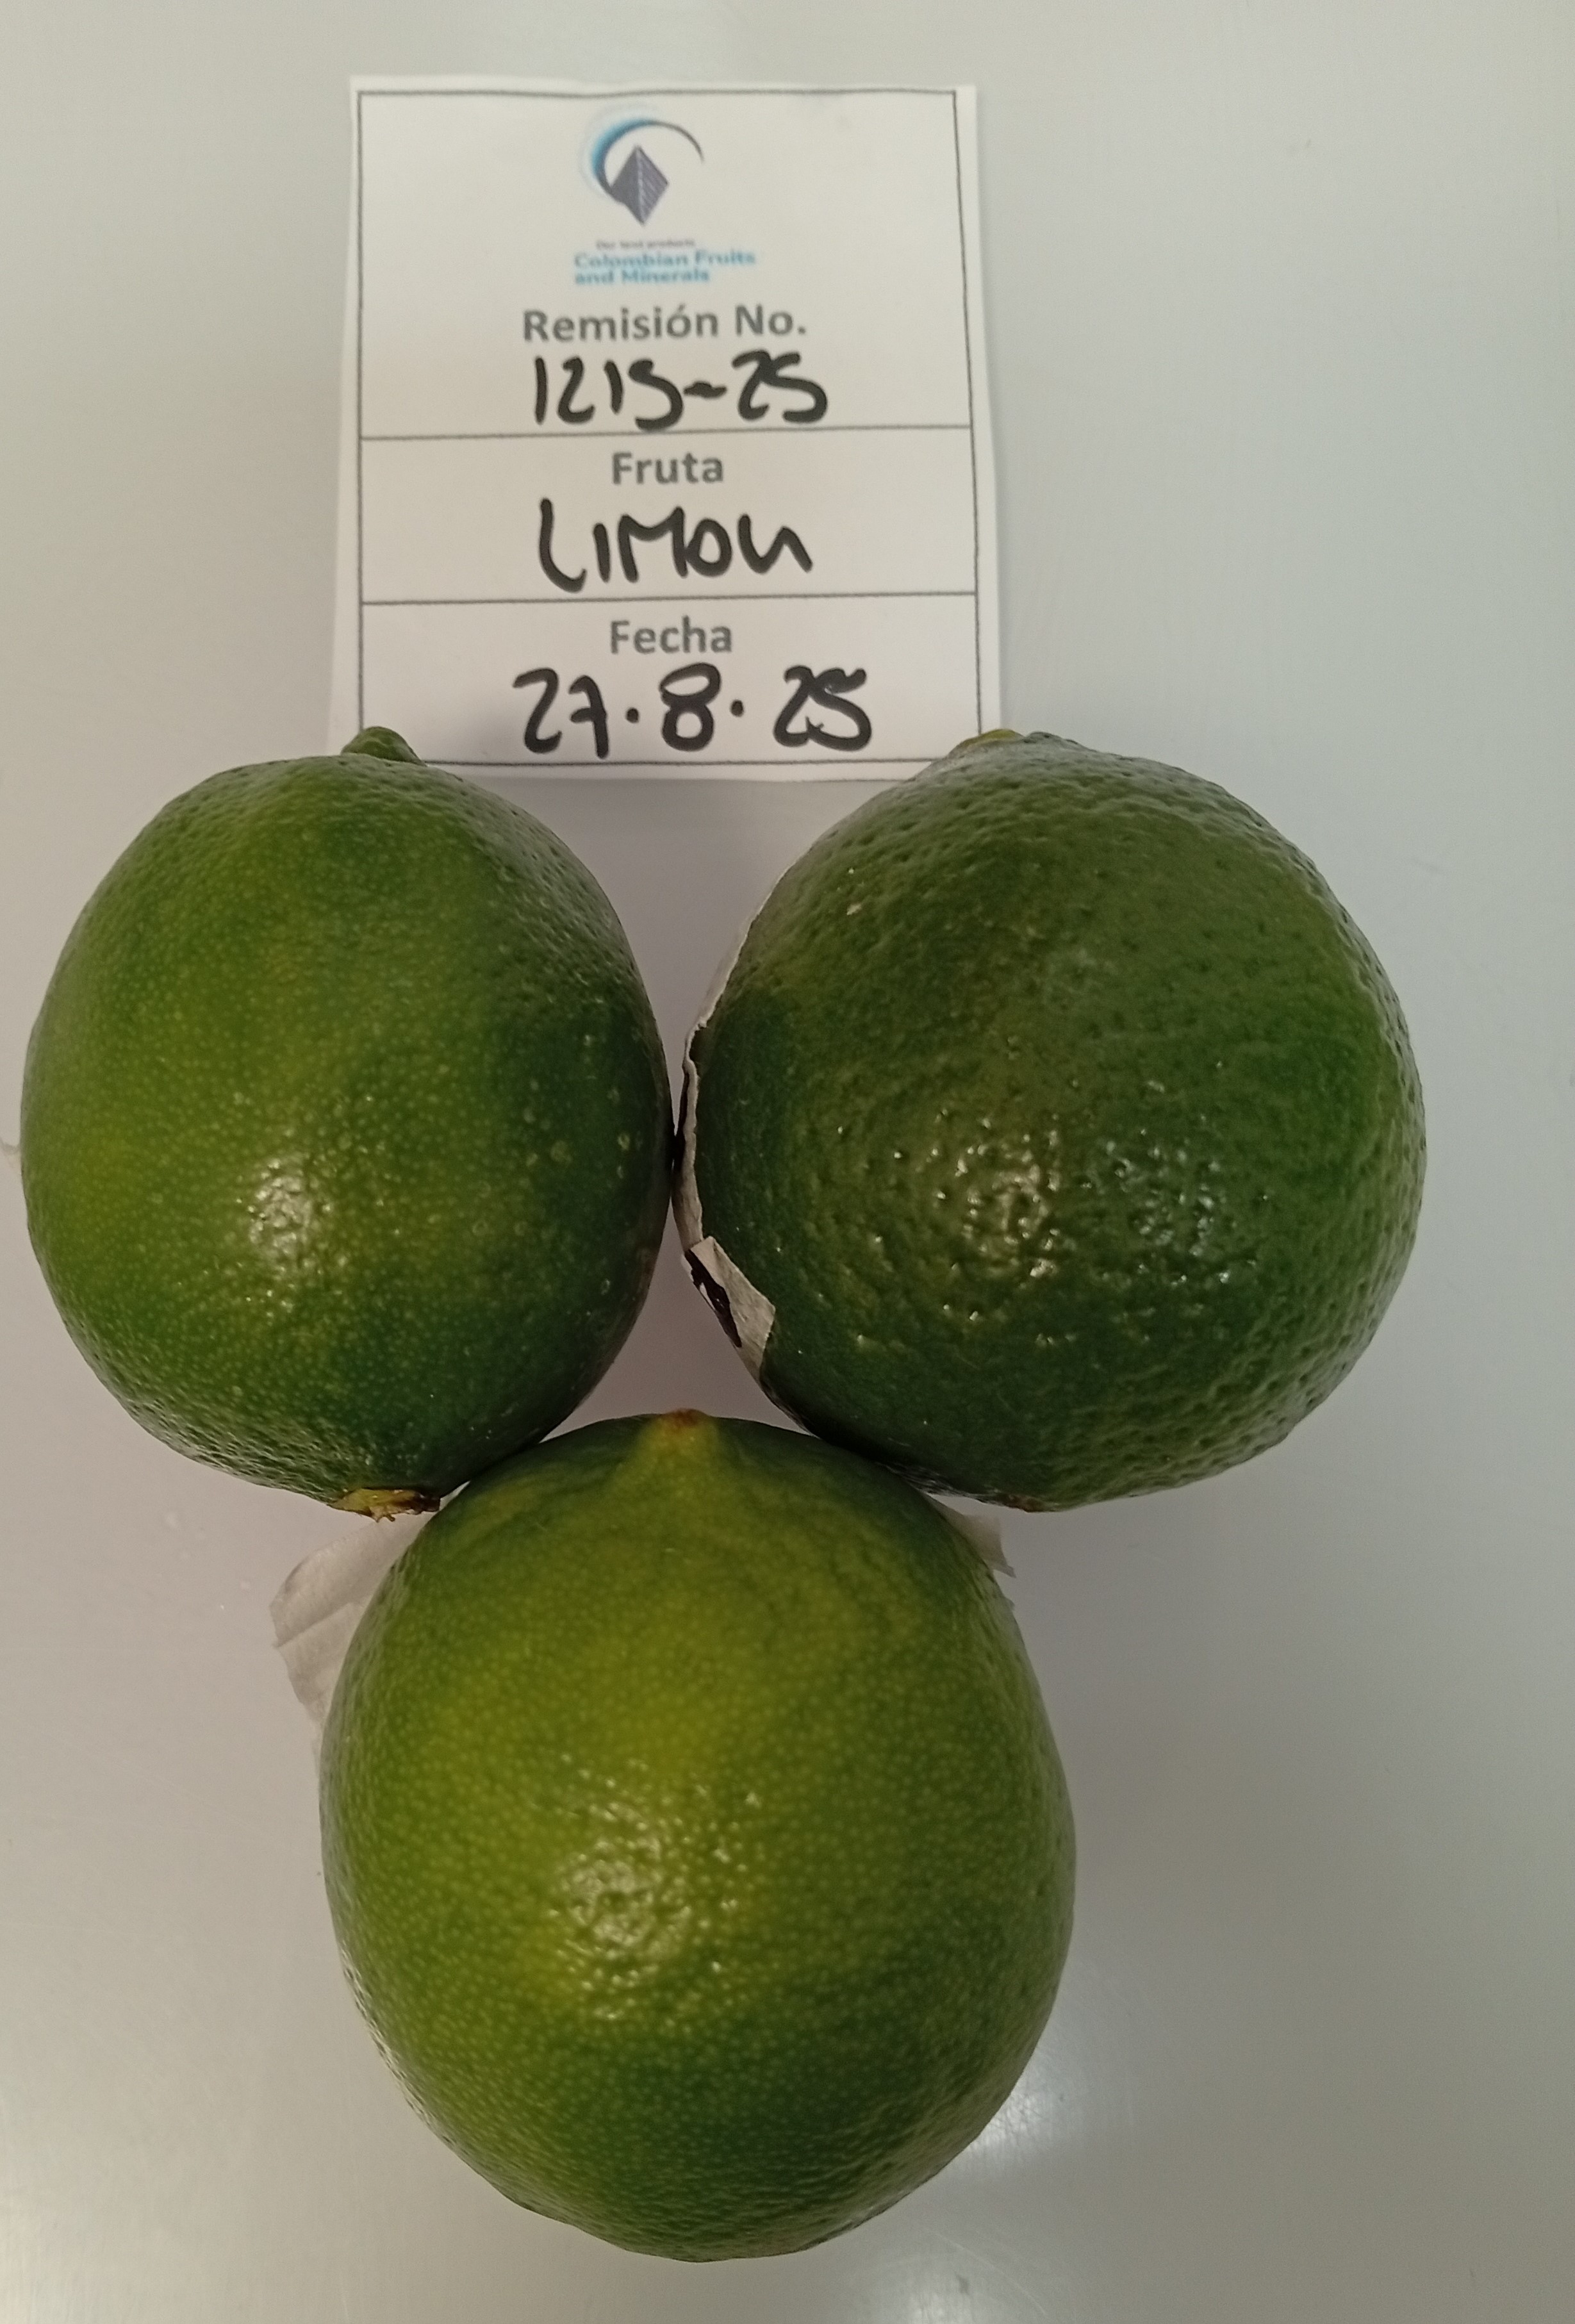 Our best products
Colombian Fruits
and Minerals
Remisión No.
1215-25
Fruta
LIMON
Fecha
27.8.25